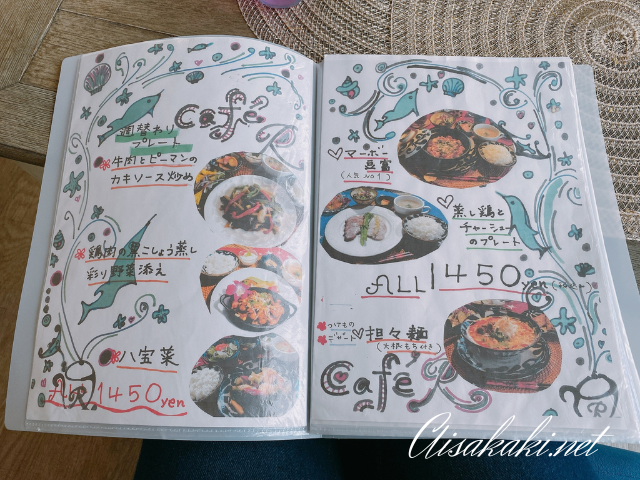 café R
週替わり
プレート
牛肉とピーマンの
カキソース炒め
鶏肉の黒こしょう蒸し
彩り野菜添え
八宝菜
ALL 1450yen
マーボー
豆富
(人気No1)
蒸し鶏と
チャーシュー
のプレート
ALL 1450yen
つけもの
デザート
担々麺
(大根もち付き)
Café R
R
Clisakaki.net